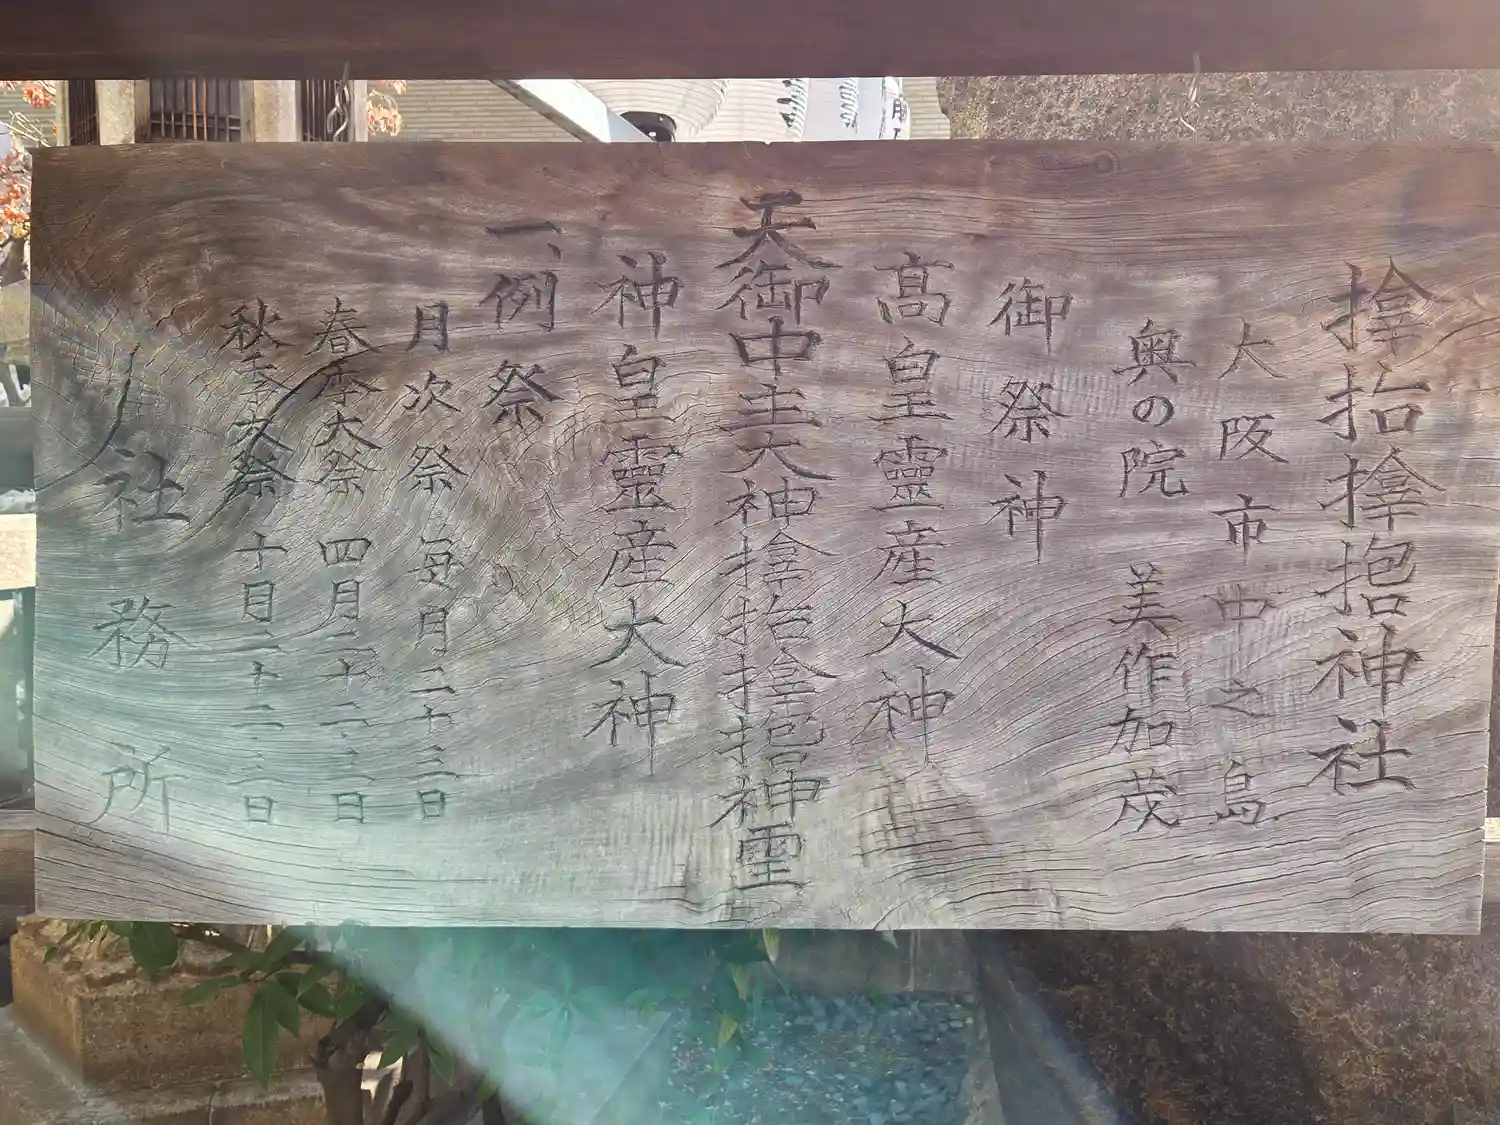 抬抱神社
大阪市中之島
奥の院 美作加茂
御祭神
髙皇靈産大神
天御中主大神抬抱神
神皇靈産大神
一、例祭
月次祭 毎月二十三日
春季大祭 四月二十二、三日
秋季大祭 十月二十二、三日
社務所